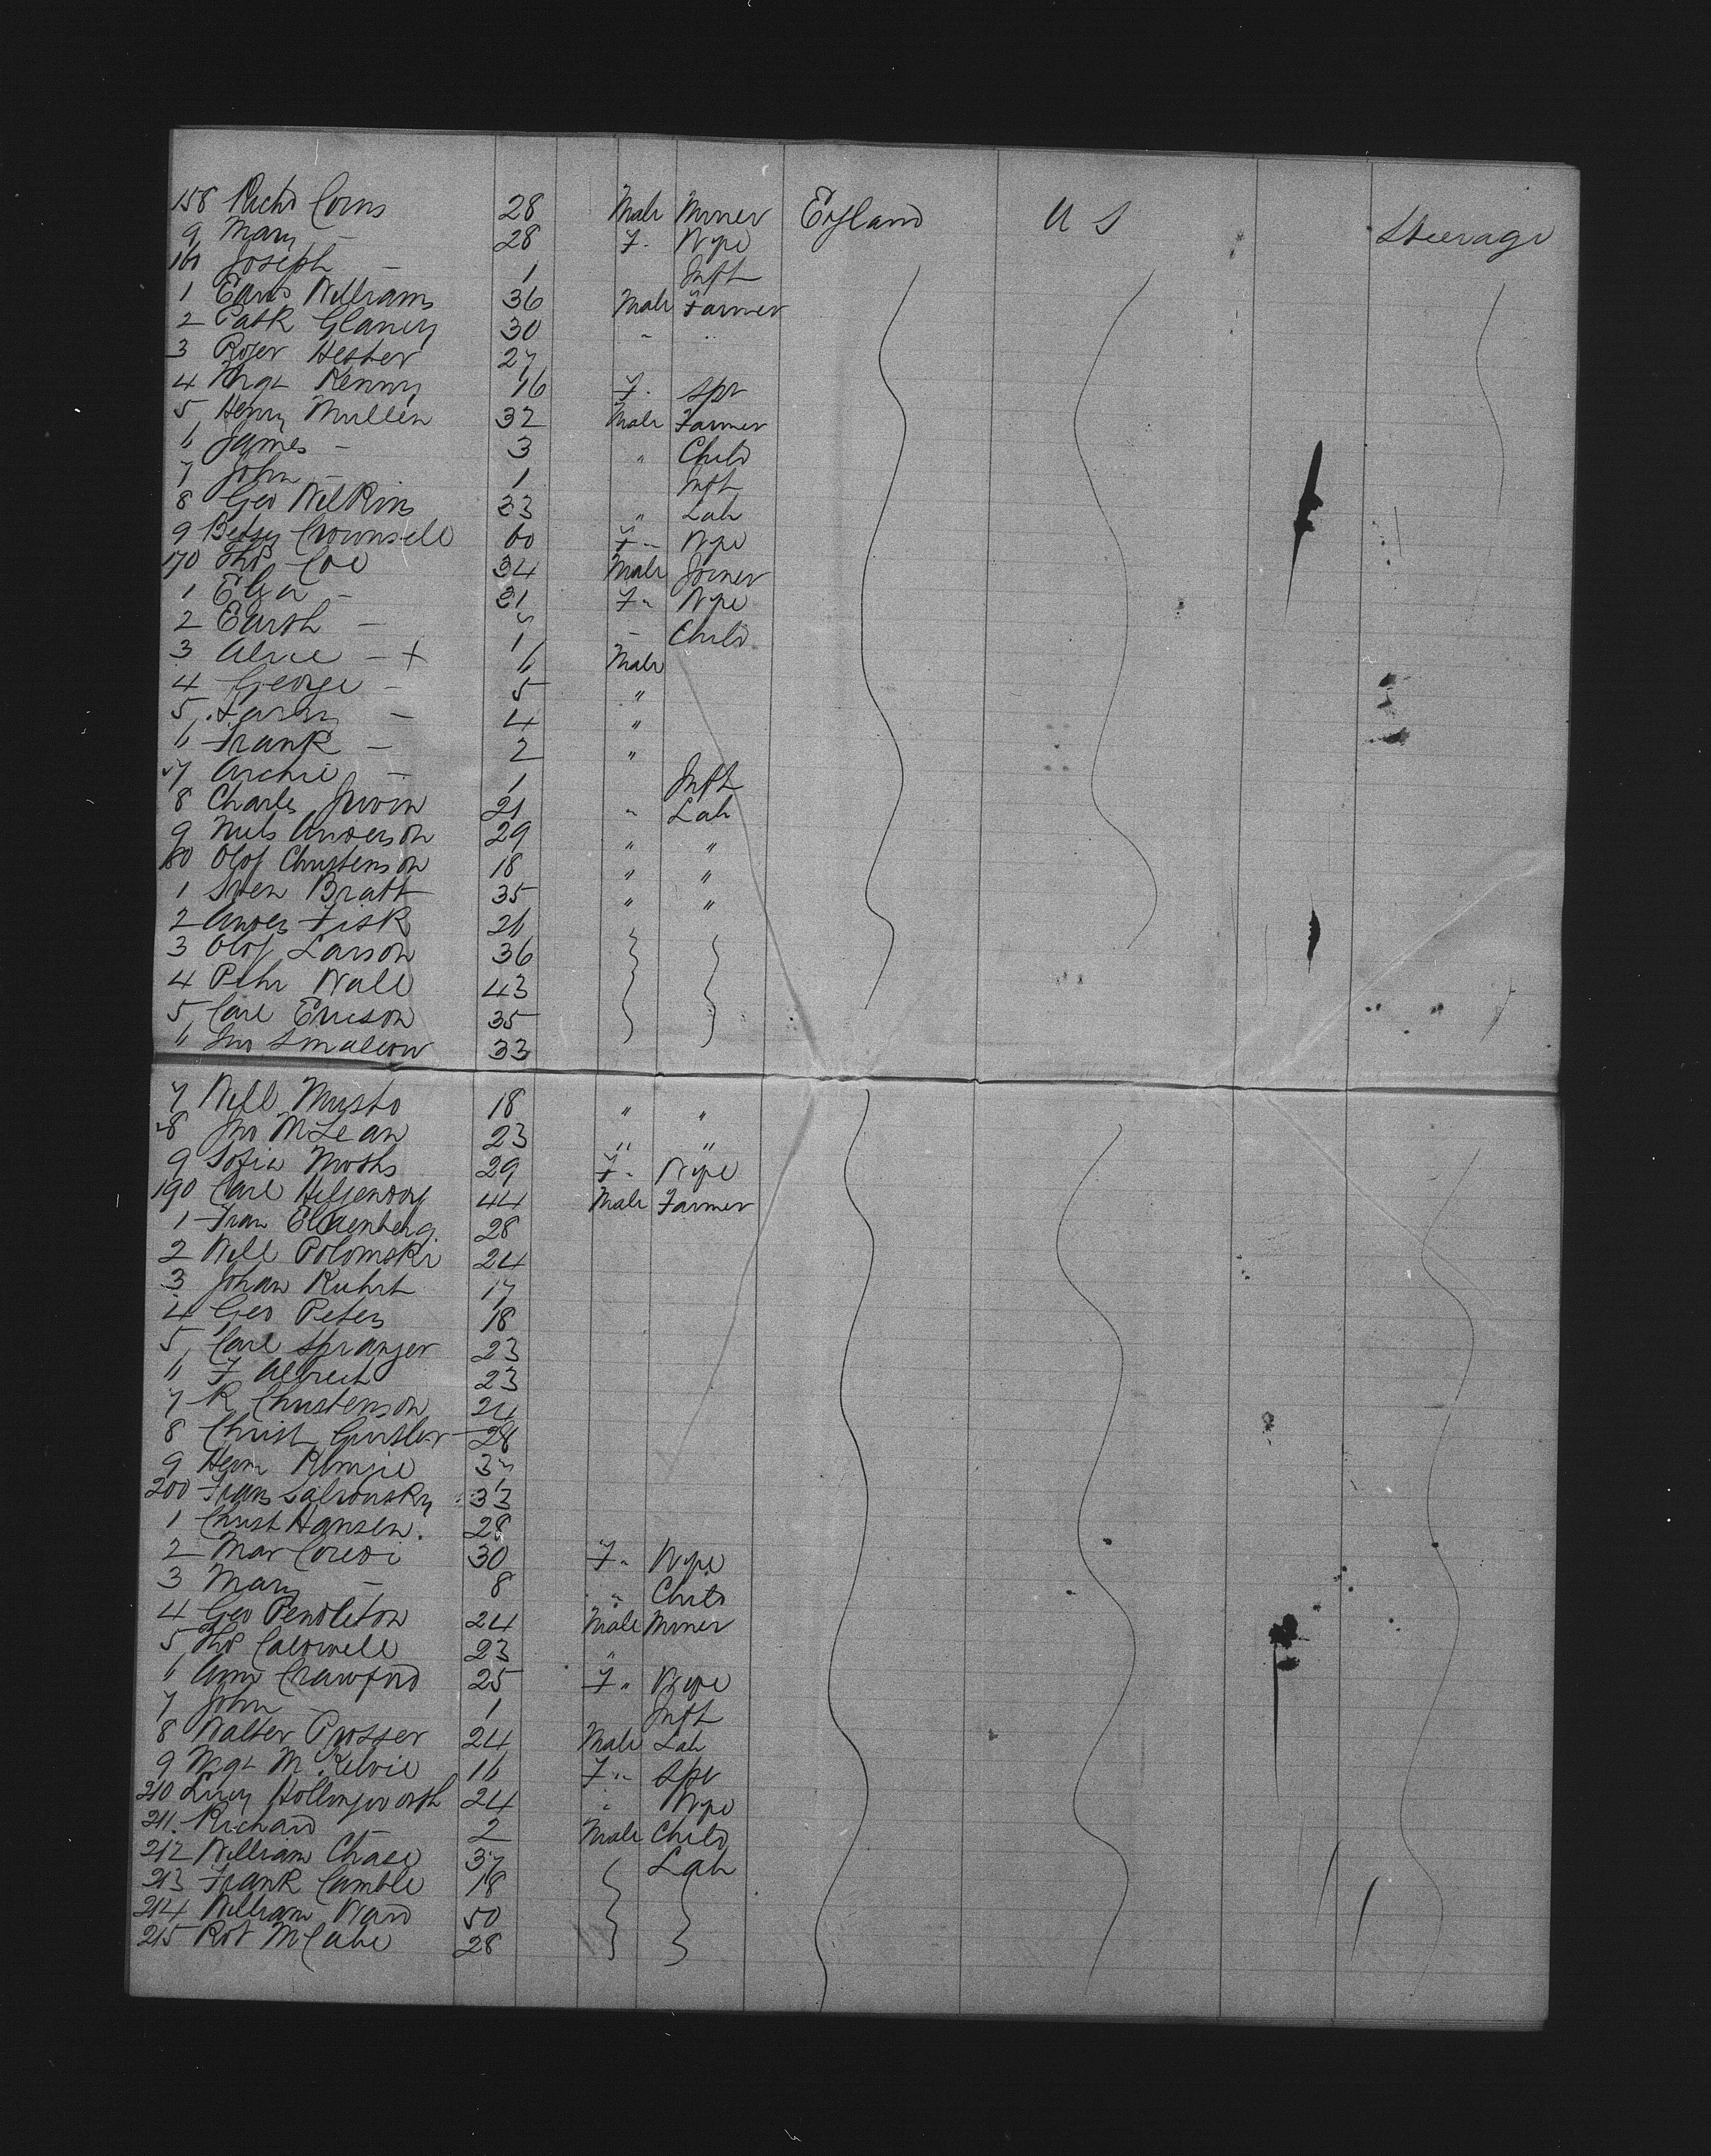 158 Richd Corns 28 Male Miner England U S Steerage
9 Mary - 28 F. Wife
160 Joseph - 1 Inft
1 Williams 36 Male Farmer
2 Patk Glancy 30 " "
3 Roger Hester 27
4 Mgt Kenny 16 F. Spr
5 Henry Mullen 32 Male Farmer
6 James - 3 " Child
7 John - 1 Inft
8 Geo Wilkins 33 " Lab
9 Betsy Crownsell 60 F " Wife
170 Thos Coe 34 Male Joiner
1 Eliza - 31 F " Wife
2 Edith - - Child
3 Alice - + 6 Male
4 George - 5 "
5 Harry - 4 "
6 Frank - 2 "
7 Archie - 1 Inft
8 Charles Irwin 21 " Lab
9 Nils Anderson 29 " "
180 Olof Christenson 18 " "
1 Sven Bratt 35 " "
2 Anders Fisk 26
3 Olof Larson 36
4 Pehr Wall 43
5 Carl Ericson 35
6 Jno Smallow 33
7 Will Musto 18 " "
8 Jno McLean 23 " "
9 Sofia Moths 29 F " Wife
190 Carl Hilgendorf 44 Male Farmer
1 Fran 28
2 Will Polomski 24
3 Johan Kuhrt 17
4 Geo Peters 18
5 Carl Spranger 23
6 F Albrecht 23
7 K Christenson 24
8 Christ 28
9 Herm
200 Frans 33
1 Christ Hansen. 28
2 Mar 30 F " Wife
3 Mary - 8 " Child
4 Geo Pendleton 24 Male Miner
5 Thos Caldwell 23 "
6 Ann Crawford 25 F " Wife
7 John - 1 Inft
8 Walter Prosser 24 Male Lab
9 Mgt McKelvie 16 F " Spr
210 Lucy Hollingworth 24 " Wife
211. Richard - 2 Male Child
212 William Chase 37 Lab
213 Frank Camble 18
214 William Ward 50
215 Rot McCabe 28